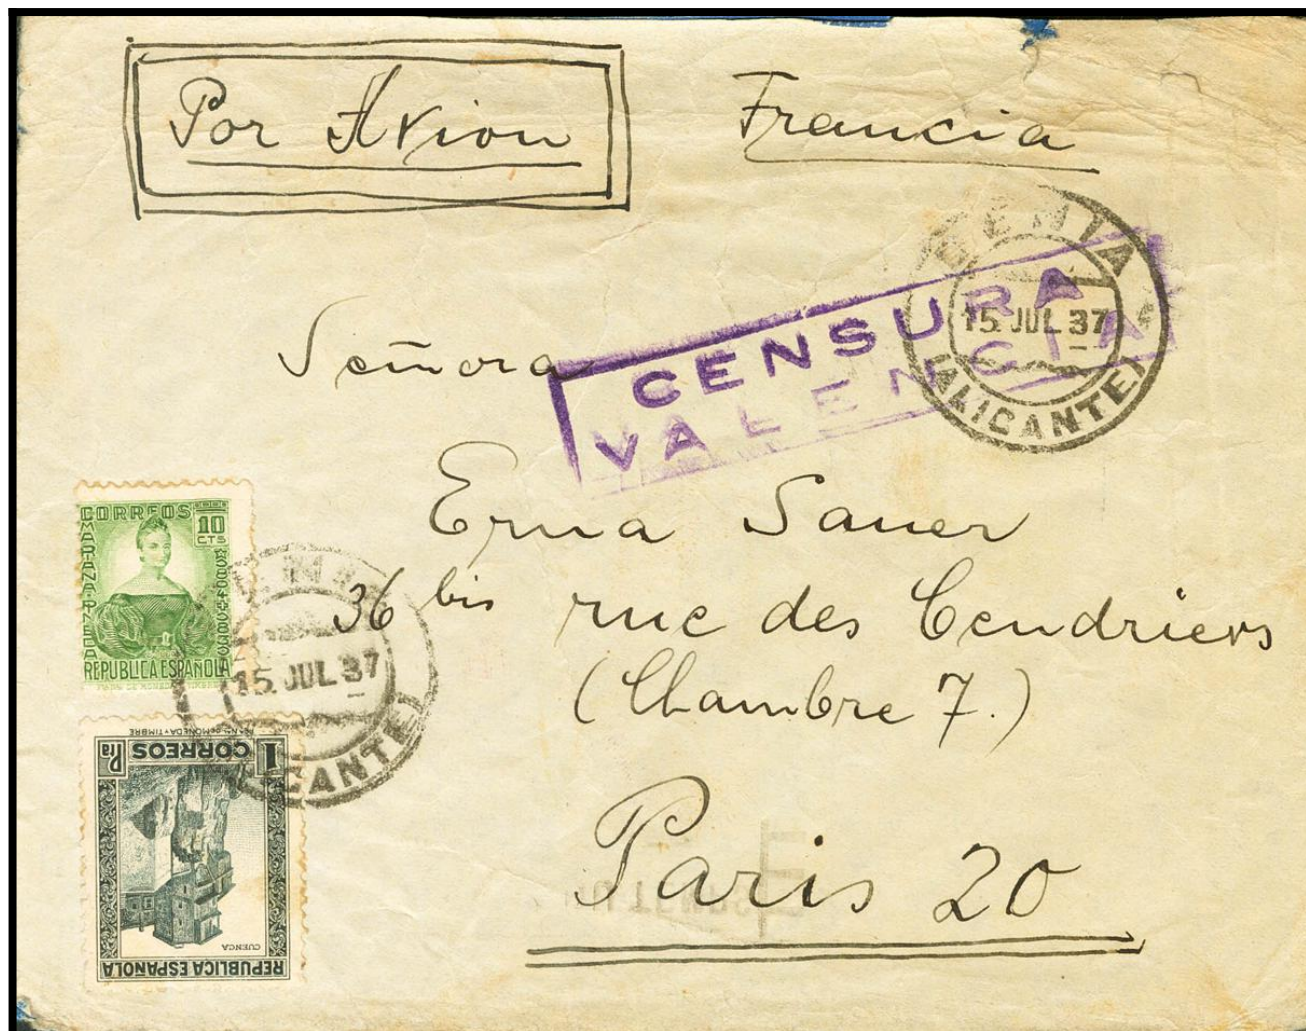 Por Avion
Francia
DENIA
15 JUL 37
(ALICANTE)
CENSURA
VALENCIA
Señora
Erna Sauer
36 bis rue des Cendriers
(Chambre 7.)
Paris 20
CORREOS
10
CTS
MARIANA PINEDA
REPUBLICA ESPAÑOLA
15 JUL 37
1 CORREOS Pta
CUENCA
REPUBLICA ESPAÑOLA